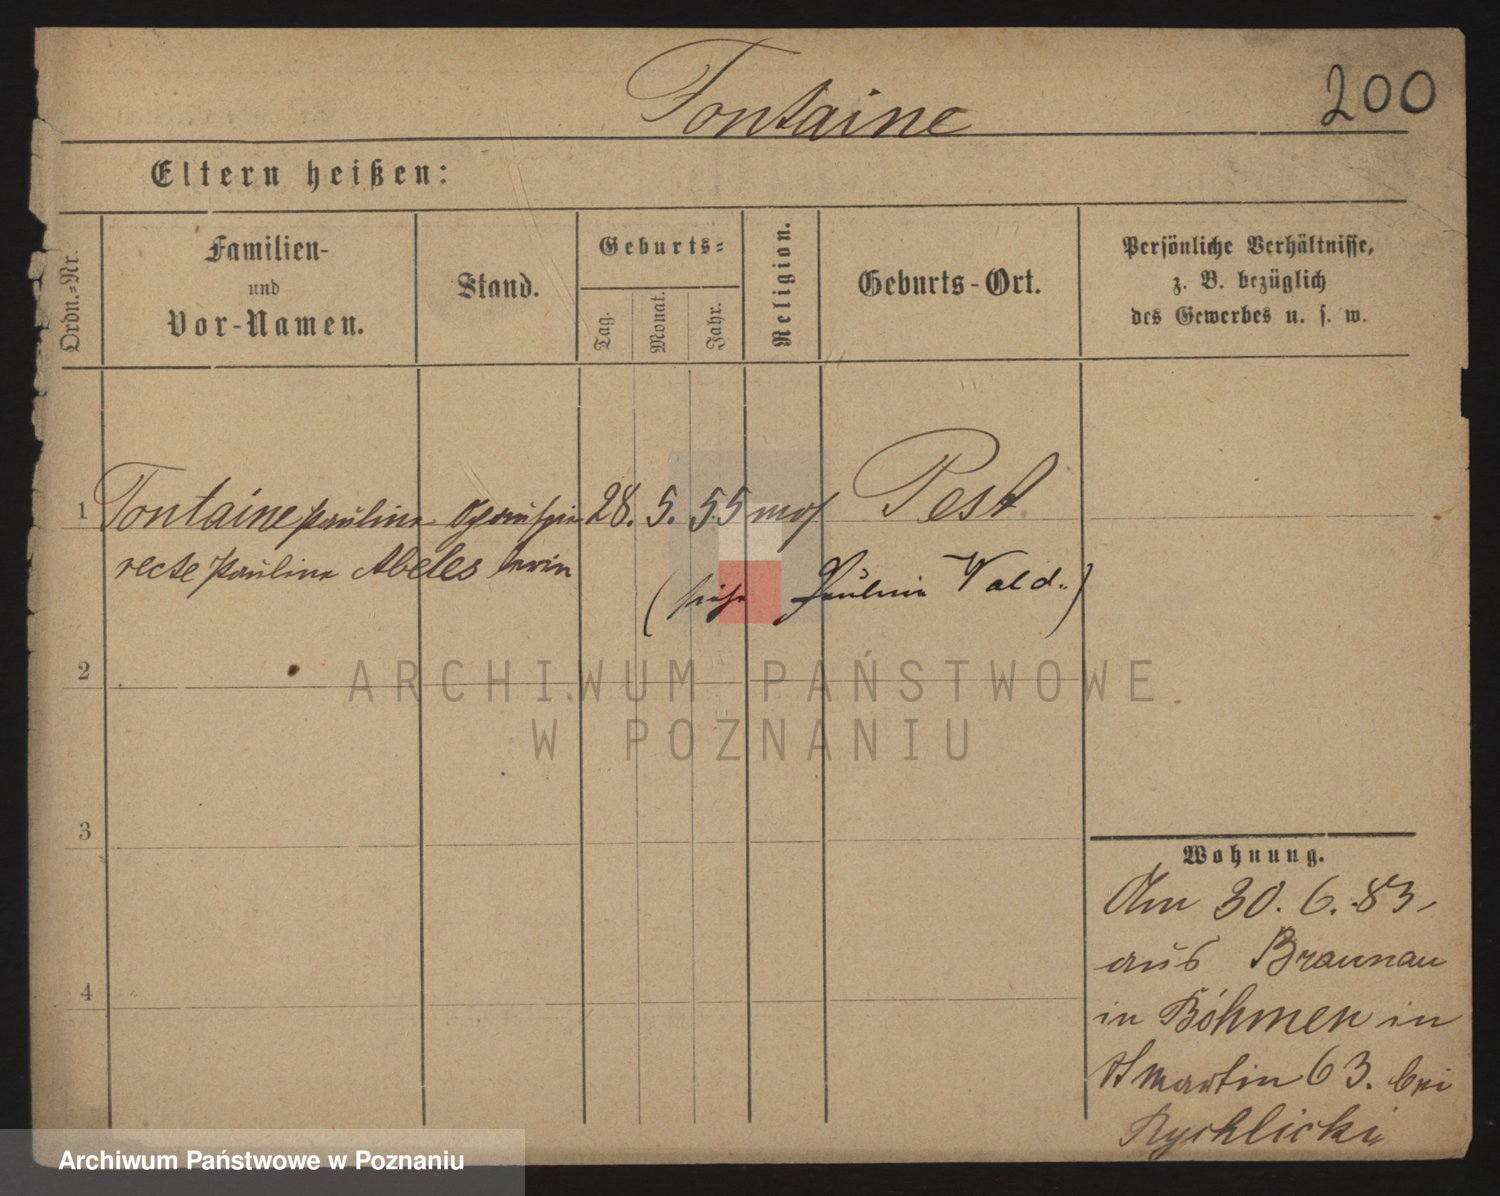 Fontaine
200
Eltern heißen:
Ordn.-Nr.
Familien-
und
Vor-Namen.
Stand.
Geburts-
Tag.
Monat.
Jahr.
Religion.
Geburts-Ort.
Persönliche Verhältnisse,
z. B. bezüglich
des Gewerbes u. s. w.
1 Fontaine Pauline 28. 5. 55 mos Pest
recte Pauline Abeles
(siehe Pauline Wald.)
2
ARCHIWUM PAŃSTWOWE
W POZNANIU
3
Wohnung.
Am 30. 6. 83,
aus Braunau
4
in Böhmen in
St Martin 63. bei
Rychlicki
Archiwum Państwowe w Poznaniu